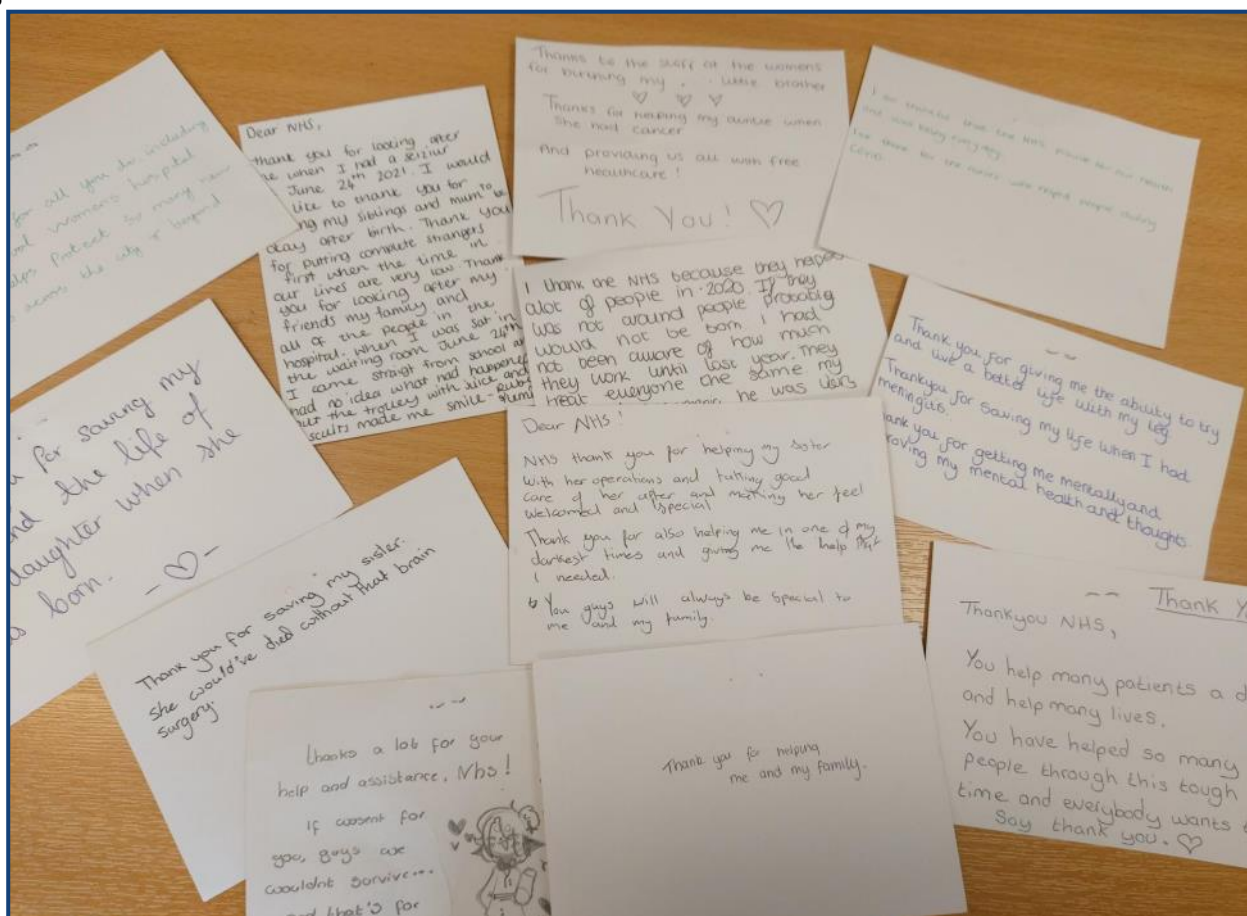 for all you do including
womens hospital
helps protect so many new
across the city & beyond
Dear NHS,
thank you for looking after
me when I had a seiziur
June 24th 2021. I would
like to thank you for
my siblings and mum to be
okay after birth. Thank you
for putting complete strangers
first when the time in
our lives are very low. Thank
you for looking after my
friends my family and
all of the people in the
hospital. When I was sat in
the waiting room June 24th
I came straigt from school and
had no idea what had happened
but the trolley with juice and
made me smile
Thanks to the staff at the womens
for birthing my little brother
Thanks for helping my auntie when
she had cancer
And providing us all with free
healthcare!
Thank You!
I am thankful that the NHS provide for our health
and well being everyday.
the nurses who helped people during
Covid.
I thank the NHS because they helped
alot of people in 2020. If they
was not around people probably
would not be born I had
not been aware of how much
they work until last year. They
treat everyone the same my
he was
Thank you for giving me the ability to try
and live a better life with my leg.
Thankyou for saving my life when I had
meningits.
Thank you for getting me mentally and
my mental health and thoughts.
for saving my
and the life of
daughter when she
born.
Dear NHS!
NHS thank you for helping my sister
With her operations and taking good
care of her after and making her feel
welcomed and special
Thank you for also helping me in one of my
darkest times and giving me the help that
I needed.
You guys will always be special to
me and my family.
Thank you for saving my sister.
She would've died without that brain
surgery.
Thank
Thankyou NHS,
You help many patients a
and help many lives.
You have helped so many
people through this tough
time and everybody wants
Say thank you.
thanks a lot for your
help and assistance, Nhs!
If wosent for
you, guys we
wouldnt survive...
and that's for
Thank you for helping
me and my family.